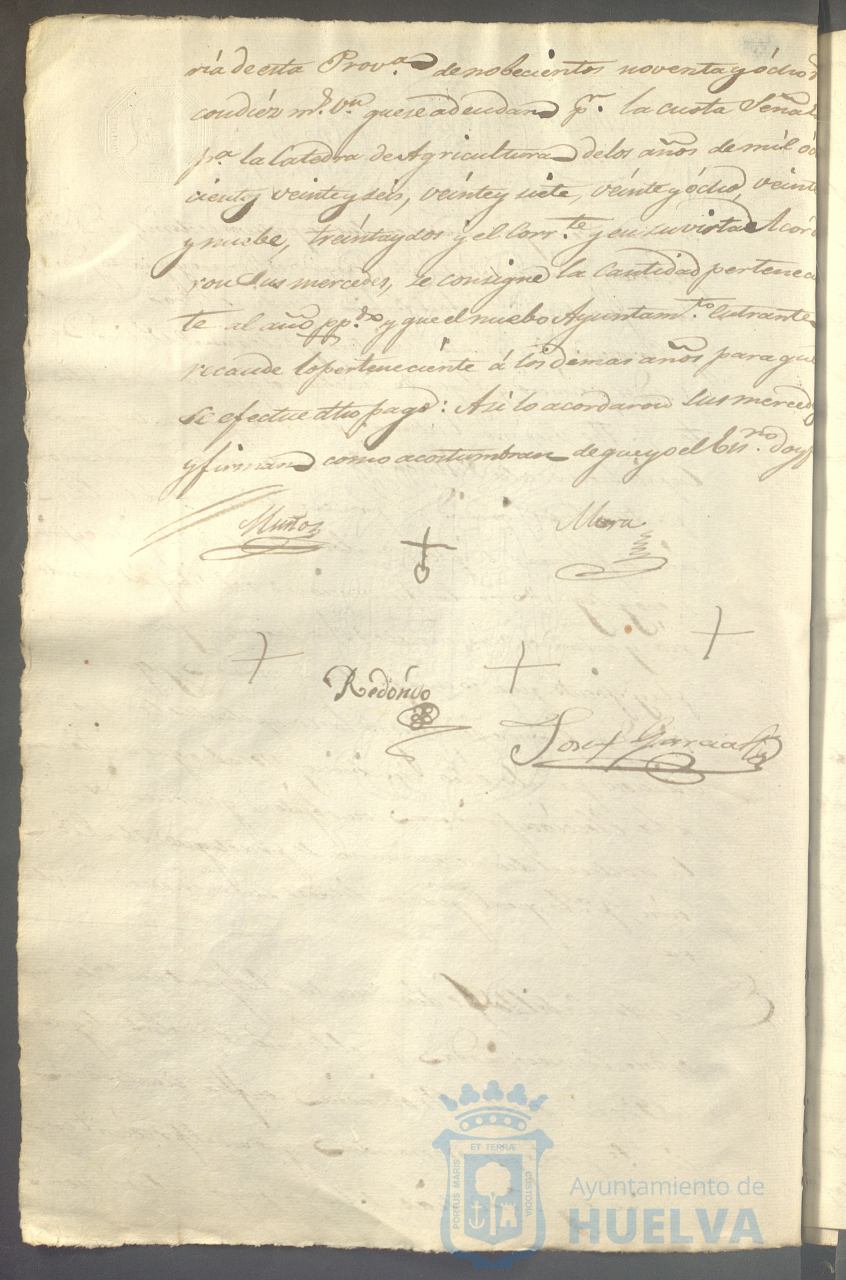 ría de esta Prov.ª de nobecientos noventa y ócho r
con diéz m.s v.n que se adeudan p.r la cuota Señal
p.ª la Catedra de Agricultura de los años de mil óc
cient.s veinte y seis, veinte y siete, veinte y ócho, veinte
y nuebe, treinta y dos y el corr.te y en su vista Acord
ron Sus mercedes, se consigne la Cantidad pertenecie
te al año pp.do y que el nuebo Ayuntam.to entrante
recaude lo perteneciente á los demas años para que
se efectue dho pago: Asi lo acordaron sus mercedes
y firman como acostumbran de que yo el Es.no doy f
Muñoz Mora
Redondo
Josef Garcia
ET TERRÆ
PORTUS MARIS
CUSTODIA
Ayuntamiento de
HUELVA